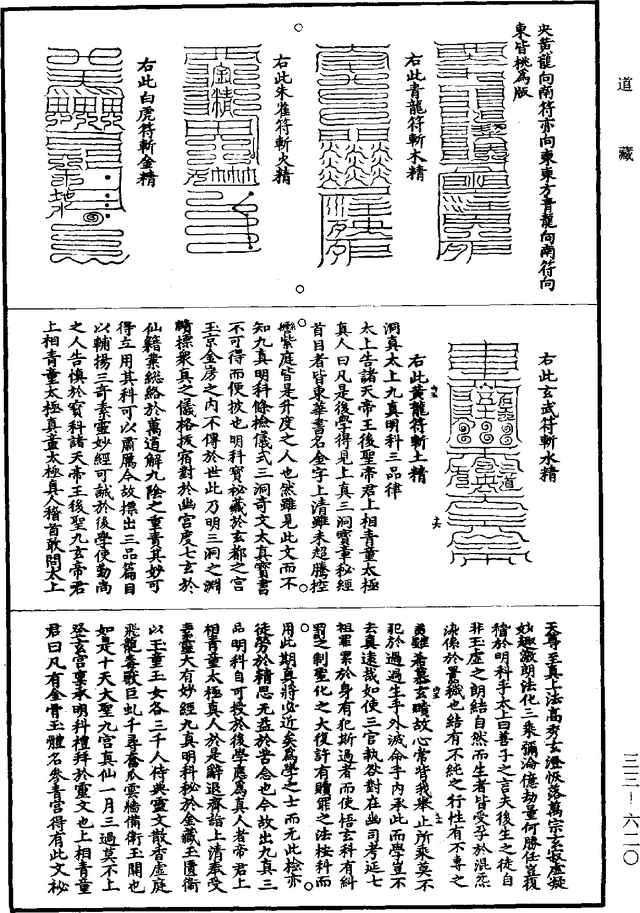 道藏
央黃龍向南符亦向東東方青龍向南符向
東皆桃爲版
右此青龍符斬木精
右此朱雀符斬火精
右此白虎符斬金精
右此玄武符斬水精
右此黃龍符斬土精
洞真太上九真明科三品律
太上告諸天帝王後聖帝君上相青童太極
真人曰凡是後學得見上真三洞寶章秘經
首目者皆東華書名金字上清雖未超騰控
轡紫庭皆是升度之人也然雖見此文而不
知九真明科條檢儀式三洞奇文太真寶書
不可得而便披也明科寶秘藏於玄都之宮
玉京金房之內不傳於世此乃明三洞之淵
賾標衆真之儀格拔宿對於幽宮度七玄於
仙籍業總絡於萬道解九陰之重責其妙可
得立用其科可以肅厲今故標出三品篇目
以輔揚三奇素靈妙經可誡於後學使勤尚
之人告慎於寶科諸天帝王後聖九玄帝君
上相青童太極真童太極真人稽首敢問太上
天尊至真丁法高秀玄澄恢落萬宗玄寂虛凝
妙趣激朗法化三乘彌淪億劫童何勝任豈復
稽於明科乎太上曰善子之言夫後生之徒自
非玉虛之朗結自然而生者皆受孕於混炁
染係於置織也結有不純之行性有不專之
美雖希慕玄賾故心常背我舉止所乘莫不
犯於過過生乎外滅命乎內承此而學豈不
去真遠哉如使三官執欲對在幽司考延七
祖罪累於身有犯斯過者而使悟玄科有糾
罰之制聖化之大復許有贖罪之法按科而
用此期真將必近矣爲學之士而无此檢亦
徒勞於精思无益於苦念也今故出九真三
品明科自可授於後學應爲真人者帝君上
相青童太極真人於是辭退齋詣上清奉受
素靈大有妙經九真明科秘於金藏玉匱衛
以玉童玉女各三千人侍典靈文散香虛庭
飛龍毒獸巨虬千尋奮爪雲牆備衛玉闕也
如是十天大聖九宮真仙一月三過莫不上
登玄宮稟承明科禮拜於靈文也上相青童
君曰凡有金骨玉體名參青宮得有此文秘
三三—六二〇